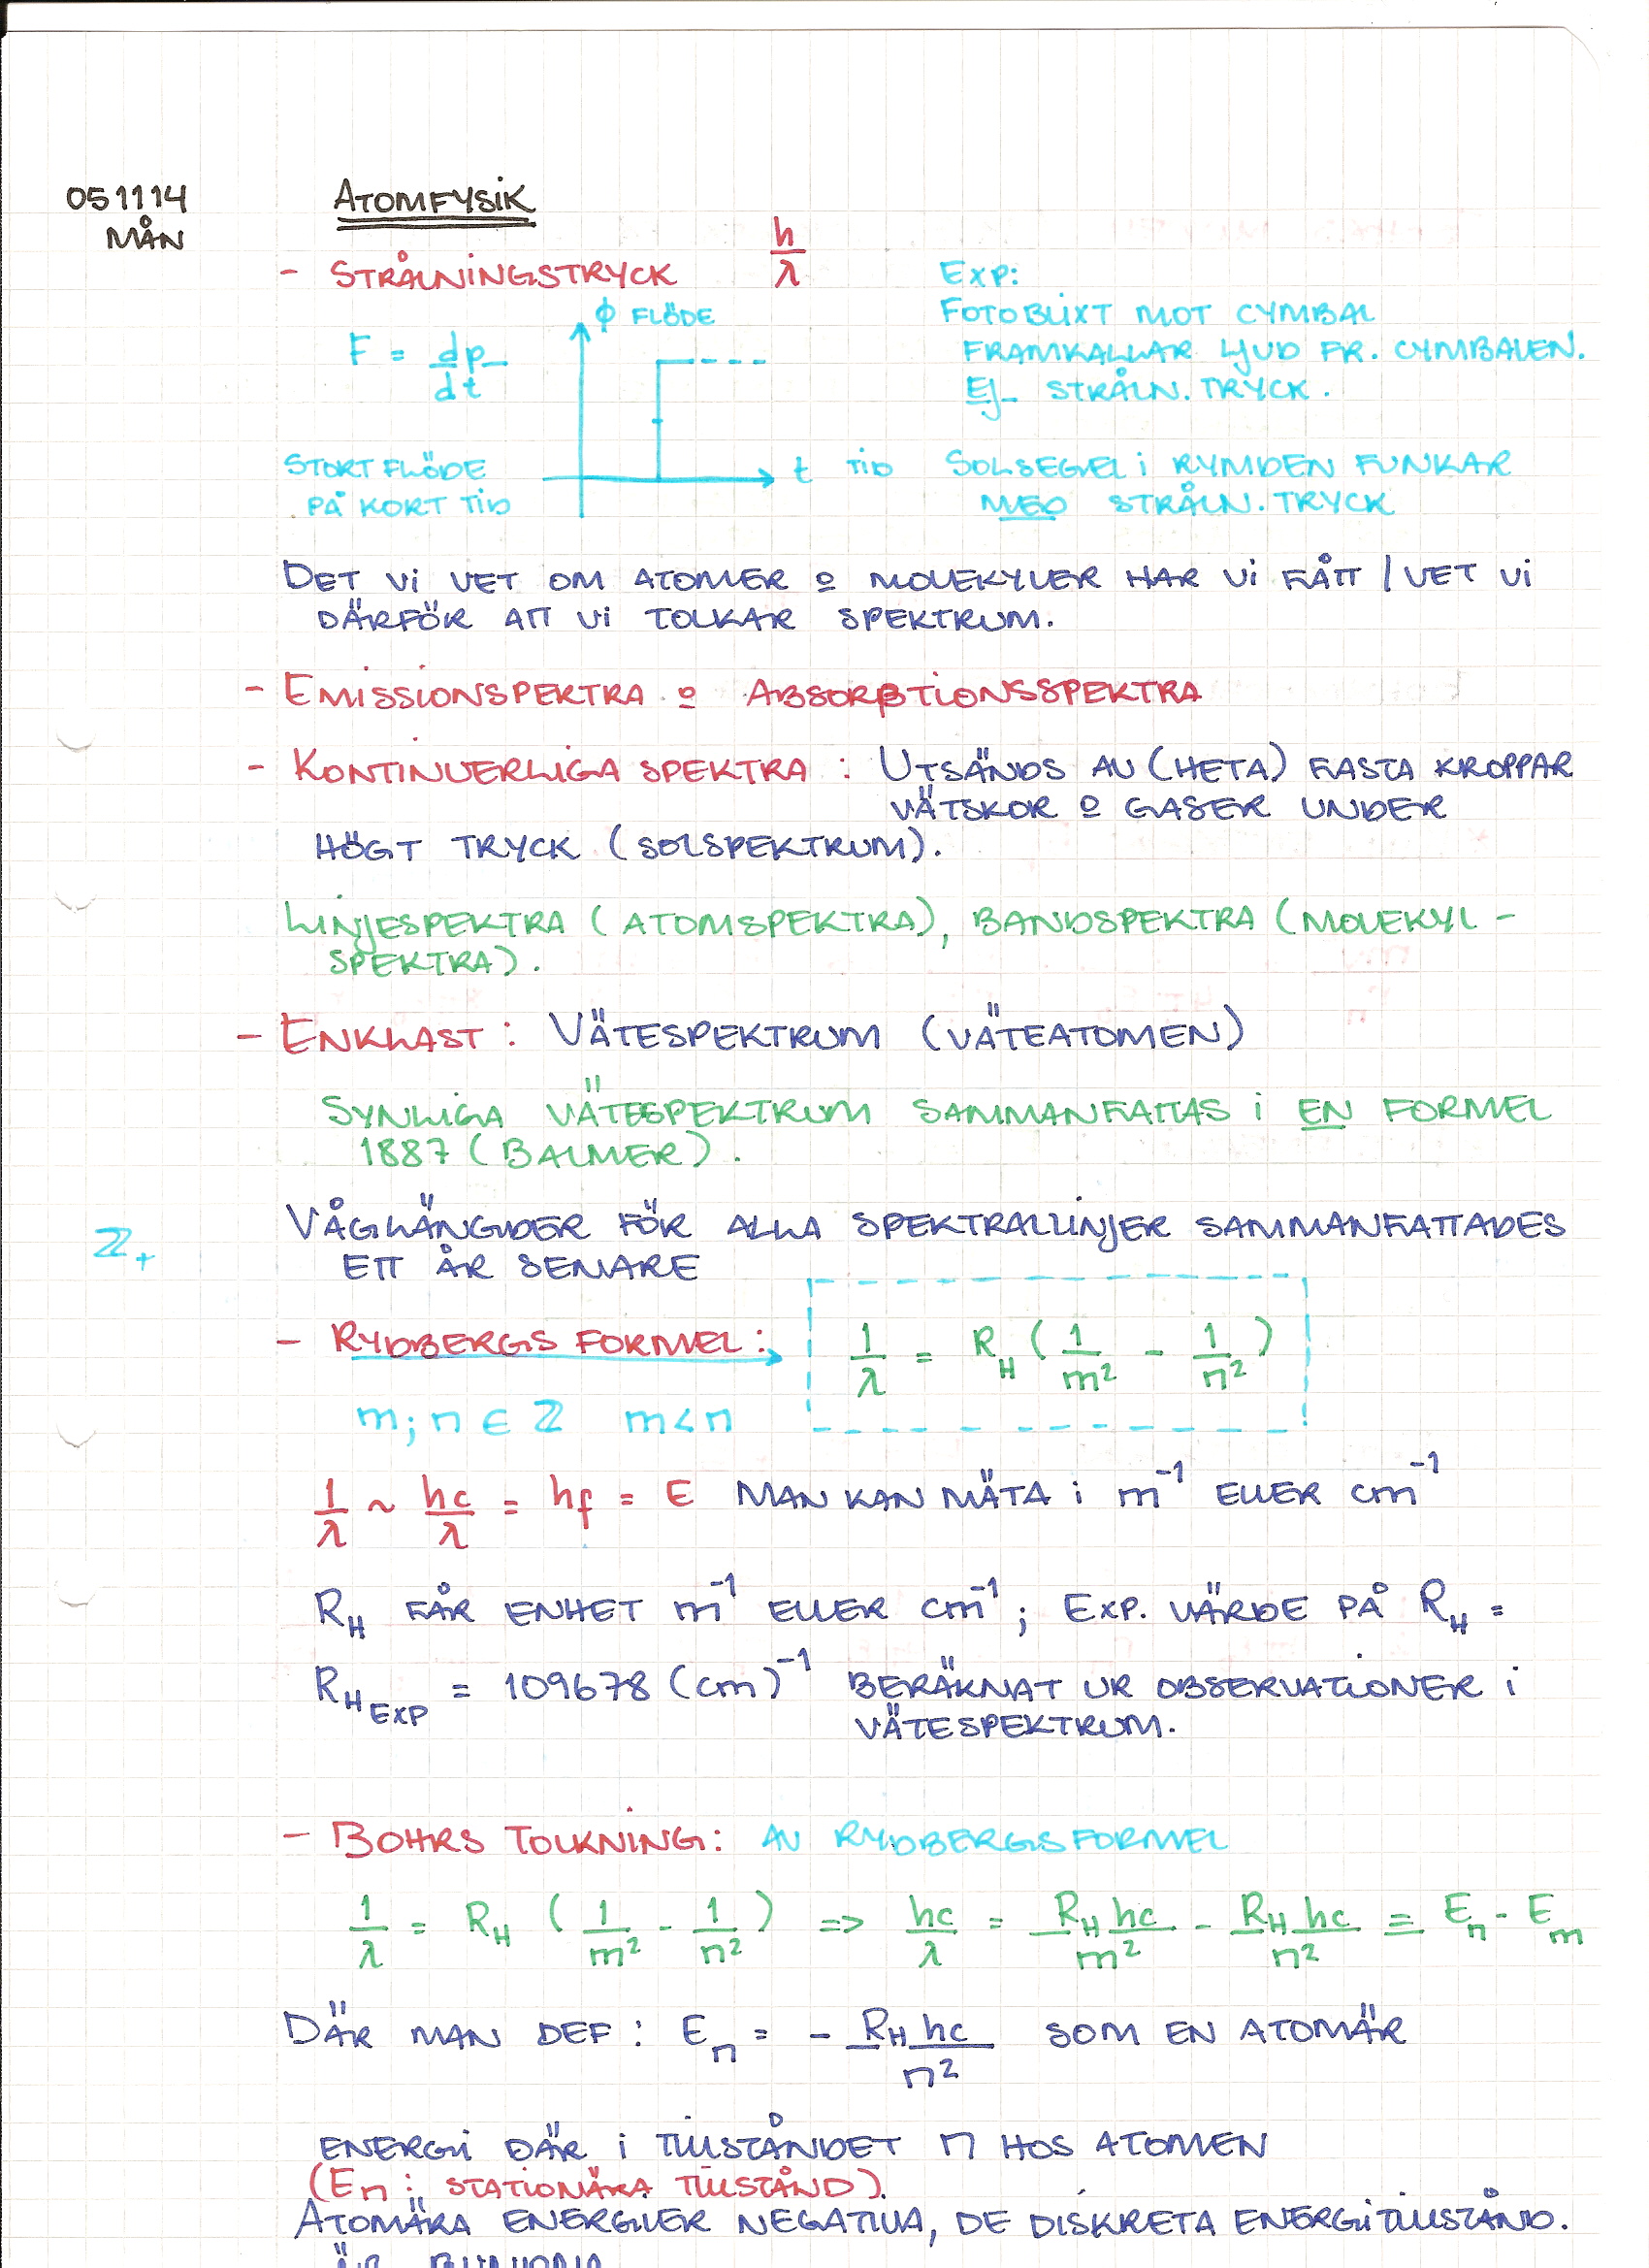 051114
MÅN
ATOMFYSIK
- STRÅLNINGSTRYCK h/λ
F = dp/dt
ϕ FLÖDE
t TID
STORT FLÖDE
PÅ KORT TID
EXP:
FOTOBLIXT MOT CYMBAL
FRAMKALLAR LJUD FR. CYMBALEN.
EJ STRÅLN. TRYCK.
SOLSEGEL I RYMDEN FUNKAR
MED STRÅLN. TRYCK
DET VI VET OM ATOMER o MOLEKYLER HAR VI FÅTT / VET VI
DÄRFÖR ATT VI TOLKAR SPEKTRUM.
- EMISSIONSPEKTRA o ABSORPTIONSSPEKTRA
- KONTINUERLIGA SPEKTRA : UTSÄNDS AV (HETA) FASTA KROPPAR
VÄTSKOR o GASER UNDER
HÖGT TRYCK (SOLSPEKTRUM).
LINJESPEKTRA (ATOMSPEKTRA), BANDSPEKTRA (MOLEKYL-
SPEKTRA).
- ENKLAST : VÄTESPEKTRUM (VÄTEATOMEN)
SYNLIGA VÄTESPEKTRUM SAMMANFATTAS I EN FORMEL
1887 (BALMER).
VÅGLÄNGDER FÖR ALLA SPEKTRALLINJER SAMMANFATTADES
ETT ÅR SENARE
ℤ+
- RYDBERGS FORMEL: 1/λ = R_H (1/m² - 1/n²)
m; n ∈ ℤ m<n
1/λ ~ hc/λ = hf = E MAN KAN MÄTA I m⁻¹ ELLER cm⁻¹
R_H FÅR ENHET m⁻¹ ELLER cm⁻¹; EXP. VÄRDE PÅ R_H =
R_H EXP = 109678 (cm)⁻¹ BERÄKNAT UR OBSERVATIONER I
VÄTESPEKTRUM.
- BOHRS TOLKNING: AV RYDBERGS FORMEL
1/λ = R_H (1/m² - 1/n²) => hc/λ = R_H hc/m² - R_H hc/n² = E_n - E_m
DÄR MAN DEF : E_n = - R_H hc/n² SOM EN ATOMÄR
ENERGI DÄR I TILLSTÅNDET n HOS ATOMEN
(E_n : STATIONÄRA TILLSTÅND).
ATOMÄRA ENERGIER NEGATIVA, DE DISKRETA ENERGITILLSTÅND.